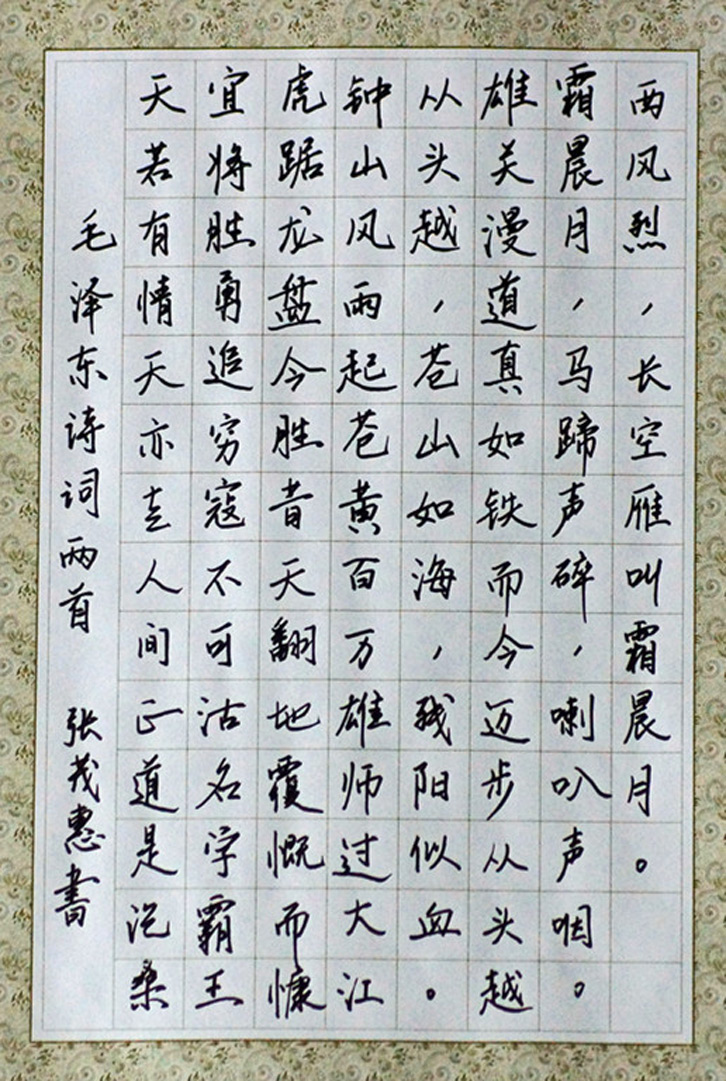 西风烈，长空雁叫霜晨月。
霜晨月，马蹄声碎，喇叭声咽。
雄关漫道真如铁而今迈步从头越
从头越，苍山如海，残阳似血。
钟山风雨起苍黄百万雄师过大江
虎踞龙盘今胜昔天翻地覆慨而慷
宜将胜勇追穷寇不可沽名学霸王
天若有情天亦老人间正道是沧桑
毛泽东诗词两首 张茂惠書